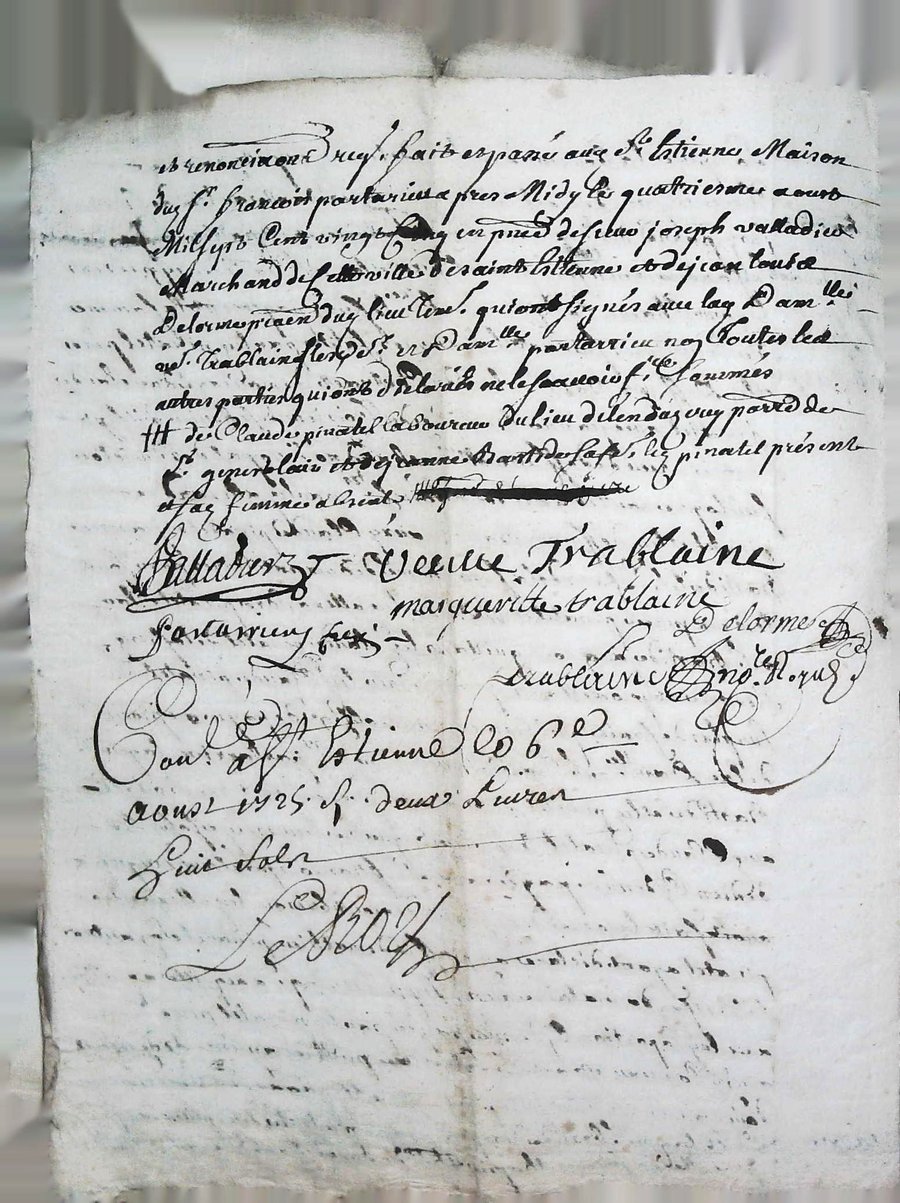 et renonciaons req.s fait et passé aud St Estienne Maison
dud Sr francois partarieu apres Midy le quatriesme aoust
Mil sept Cent vingt Cinq en pnce de sieur joseph valladier
Marchand de Cette ville de saint Estienne et de jean louis
Delorme pratn dud lieu tes. qui ont signés avec lad Damlle
ve. Trablaine led Sr et Damlle partarrieu non Toutes les
autres parties qui ont déclarés ne le scavoir fe Sommés
de Claude pinatel laboureur du lieu de parre de
St genest lair et de jeanne sa fe. led pinatel présent
et sad femme absente
Valladier
veuve Trablaine
margueritte trablaine
partarrieu
Delorme
trablaine
nore Royal
Conlé à St. Estienne le 6e
aoust 1725 R. deux Livres
huit sols